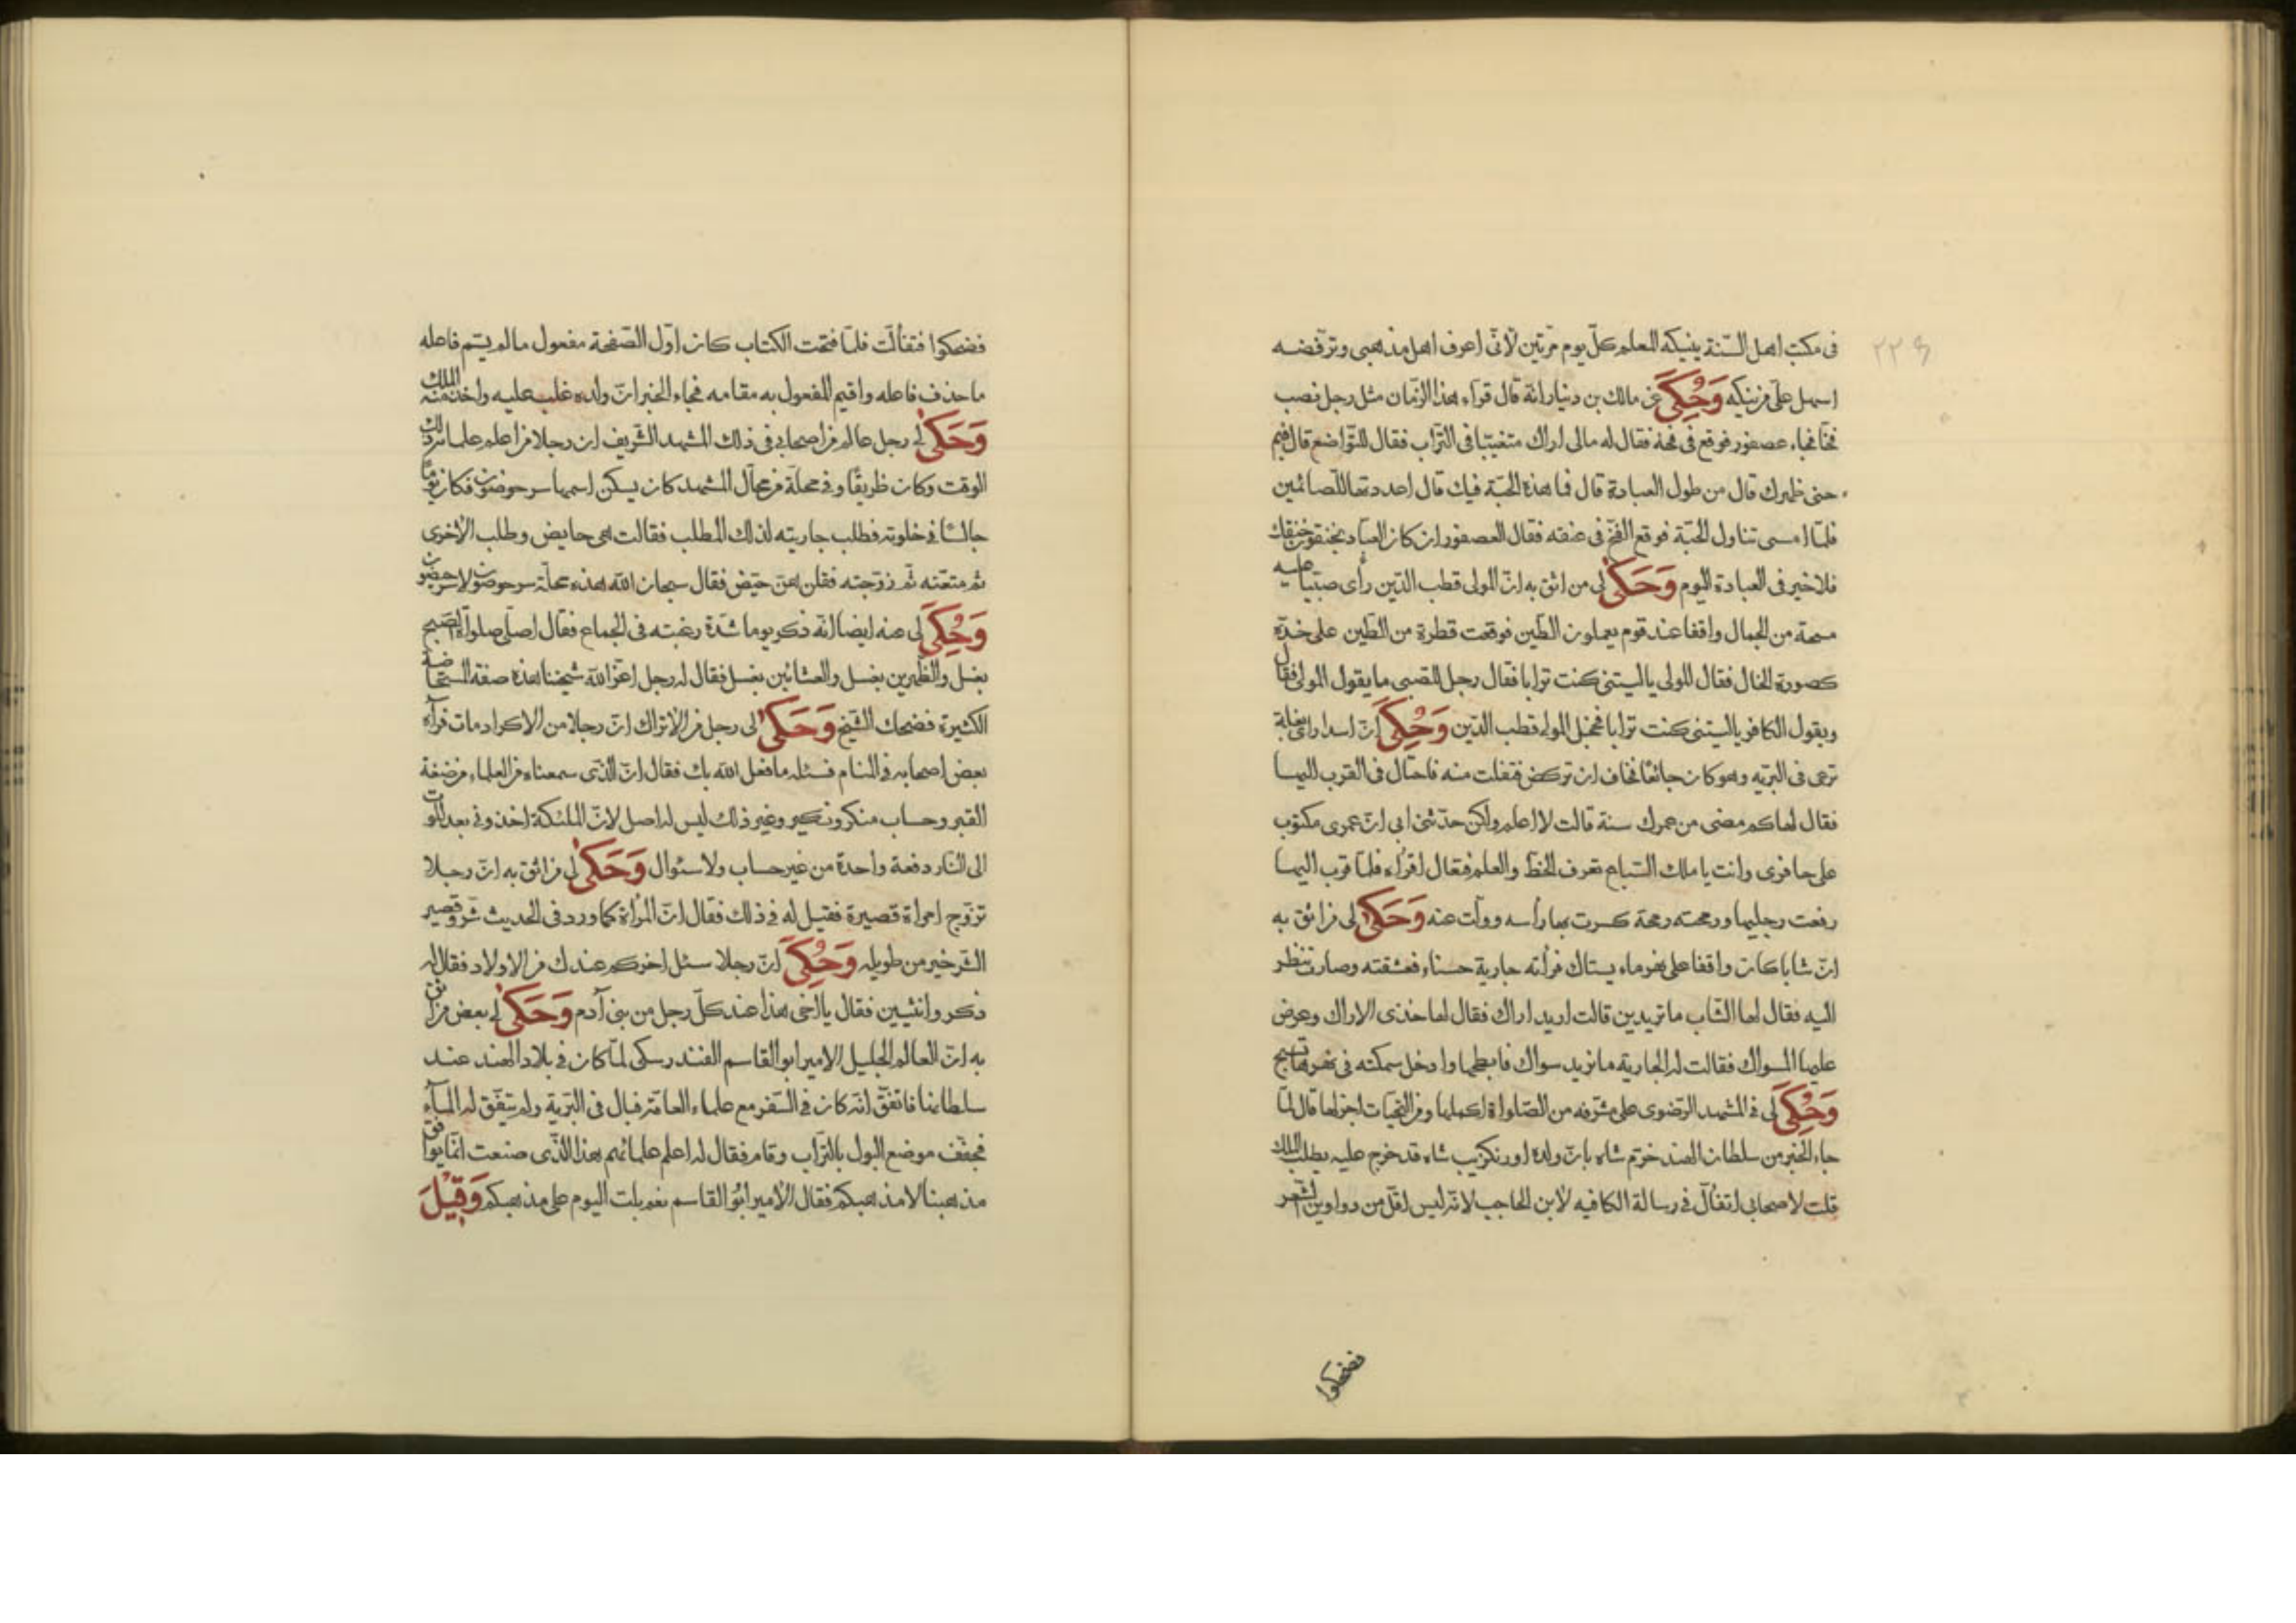 ٢٢٤
فى مكتب اهل السّنة ينيكه المعلم كلّ يوم مرّتين لأنّى اعرف اهل مذهبى وترفضه
اسهل علىّ من نيكه وَحُكِىَ عن مالك بن دينار انّه قال قرآء هذا الزّمان مثل رجل نصب
فخّا فجاء عصفور فوقع فى فخه فقال له مالى اراك متغيّبا فى التّراب فقال للتّواضع قال فبم
حنى ظهرك قال من طول العبادة قال فما هذه الحبّة فيك قال اعددتها للصّائمين
فلمّا امسى تناول الحبّة فوقع الفخّ فى عنقه فقال العصفور ان كان العبّاد يخنقون خنقك
فلا خير فى العبادة اليوم وَحَكىٰ لى من اثق به انّ المولى قطب الدّين رأى صبيّا عليه
مسحة من الجمال واقفا عند قوم يعملون الطّين فوقعت قطرة من الطّين على خدّه
كصورة الخال فقال المولى يا ليتنى كنت ترابا فقال رجل للصّبى ما يقول المولى فقال
ويقول الكافر يا ليتنى كنت ترابا فخجل المولى قطب الدّين وَحُكِىَ انّ اسدا راى بغلة
ترعى فى البرّيه وهو كان جائعًا فخاف ان تركض فتفلت منه فاحتال فى القرب اليها
فقال لها كم مضى من عمرك سنة قالت لا اعلم ولكن حدّثنى ابى انّ عمرى مكتوب
على حافرى وانت يا ملك السّباع تعرف الخطّ والعلم فقال اقرأه فلمّا قرب اليها
رفعت رجليها ورمحته رمحة كسرت بها رأسه وولّت عنه وَحَكىٰ لى من اثق به
انّ شابا كان واقفا على نهر ماء يستاك فرأته جارية حسناء فعشقته وصارت تنظر
اليه فقال لها الشّاب ما تريدين قالت اريد اراك فقال لها خذى الاراك وعرض
عليها المسواك فقالت له الجارية ما نريد سواك فابطحها وادخل سمكته فى نهرها تسبح
وَحُكِىَ لى فى المشهد الرّضوى على مشرّفه من الصّلواة اكملها ومن التّحيّات اجزلها قال لمّا
جاء الخبر من سلطان الهند خرّم شاه بانّ ولده اورنكزيب شاه قد خرج عليه يطلب الملك
قلت لاصحابى اتفأّل فى رسالة الكافيه لأبن الحاجب لانّه ليس اقلّ من دواوين الشعر
فضحكوا
فضحكوا فتفألّت فلمّا فتحت الكتاب كان اوّل الصّفحة مفعول ما لم يسّم فاعله
ما حذف فاعله واقيم المفعول به مقامه فجاء الخبر انّ ولده غلب عليه واخذ منه الملك
وَحَكىٰ لى رجل عالم من اصحابى فى ذلك المشهد الشّريف ان رجلا من اعلم علماء ذلك
الوقت وكان ظريفًا وفى محلّة من محالّ المشهد كان يسكن اسمها سرحوضون فكان يومًا
جالسًا فى خلوته فطلب جاريته لذلك المطلب فقالت هى حايض وطلب الأخرى
ثم متعته ثم زوّجته فقلن هنّ حيّض فقال سبحان الله هذه محلّة سرحوضون لا سرحيضون
وَحُكِىَ لى عنه ايضا انّه ذكر يوما شدّة رغبته فى الجماع فقال اصلّى صلواة الصّبح
بغسل والظّهرين بغسل والعشائين بغسل فقال له رجل اعزّ الله شيخنا هذه صفة المستحاضة
الكثيرة فضحك الشّيخ وَحَكىٰ لى رجل من الأتراك انّ رجلا من الاكراد مات فرآه
بعض اصحابه فى المنام فسئله ما فعل الله بك فقال انّ الّذى سمعناه من العلماء من ضغة
القبر وحساب منكر ونكير وغير ذلك ليس له اصل لانّ الملئكة اخذونى بعد الموت
الى النّار دفعة واحدة من غير حساب ولا سئوال وَحَكىٰ لى من اثق به انّ رجلا
تزوّج امراة قصيرة فقيل له فى ذلك فقال انّ المرأة كما ورد فى الحديث شرّ وقصير
الشّر خير من طويله وَحُكِىَ انّ رجلا سئل اخر كم عندك من الاولاد فقال له
ذكر وانثيين فقال يا اخى هذا عند كلّ رجل من بنى آدم وَحَكىٰ لى بعض من اثق
به انّ العالم الجليل الامير ابو القاسم الفندرسكى لمّا كان فى بلاد الهند عند
سلطانها فاتفقّ انّه كان فى السّفر مع علماء العامّة فبال فى البّرية ولم يتفّق له المآء
فجفّف موضع البول بالتّراب وقام فقال له اعلم علمائهم هذا الّذى صنعت انّما يوافق
مذهبنا لا مذهبكم فقال الأمير ابو القاسم نعم بلت اليوم على مذهبكم وَقيْلَ